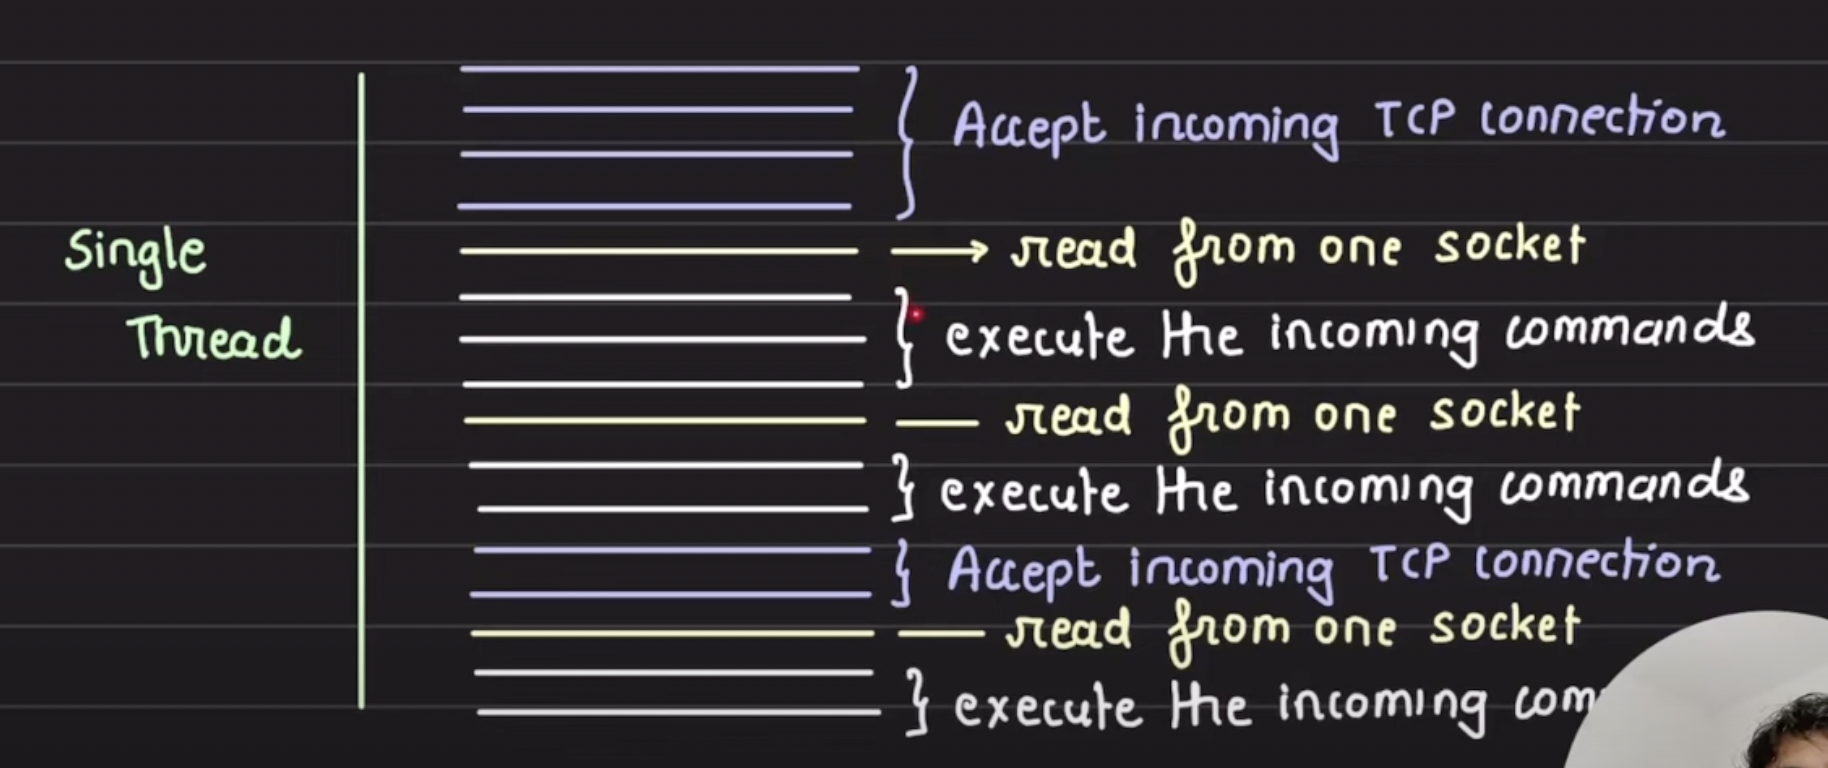 Accept incoming TCP connection
Single
read from one socket
Thread
execute the incoming commands
read from one socket
execute the incoming commands
Accept incoming TCP connection
read from one socket
execute the incoming